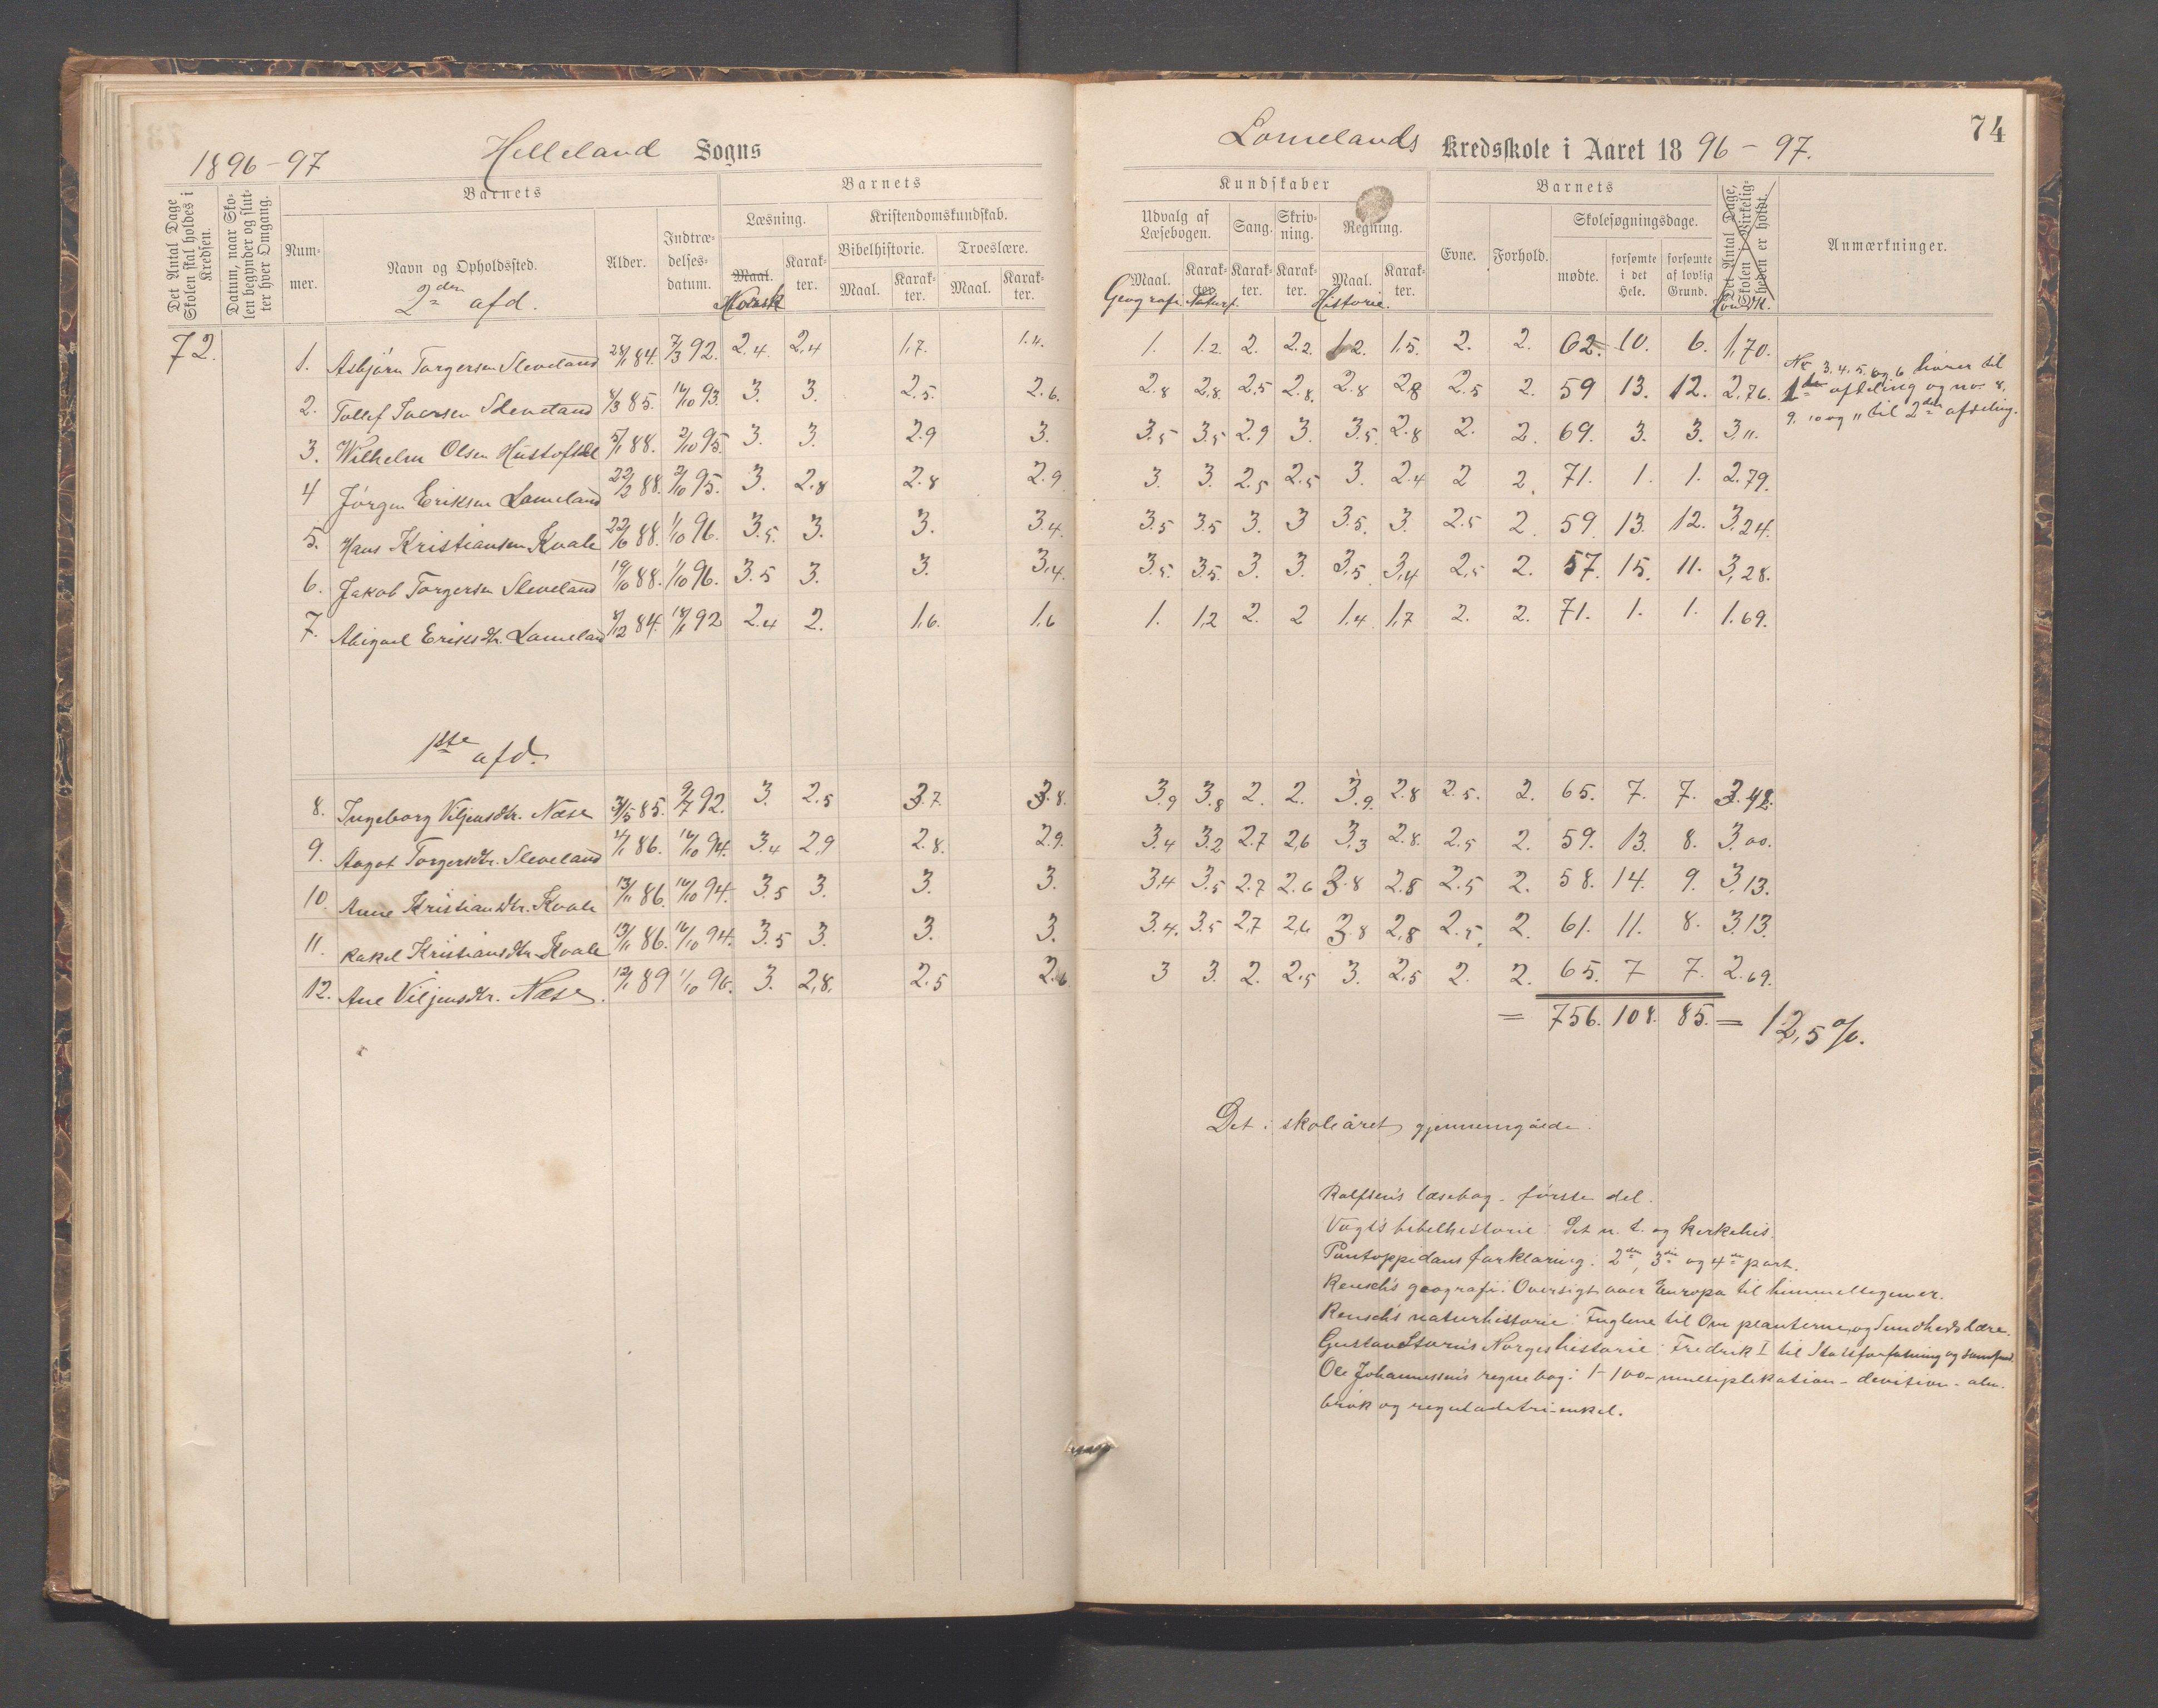 1896-97 Helleland Sogns
Lomelands Kredsskole i Aaret 1896-97. 74
Det Antal Dage Skolen skal holdes i Kredsen.
Datum, naar Skolen begynder og slutter hver Omgang.
Barnets
Nummer.
Navn og Opholdssted.
2den afd.
Alder.
Indtrædelsesdatum.
Barnets
Læsning.
Maal. Karakter.
Norsk
Kristendomskundskab.
Bibelhistorie. Troeslære.
Maal. Karakter. Maal. Karakter.
Kundskaber
Udvalg af Læsebogen. Sang. Skrivning. Regning.
Maal. Karakter. Karakter. Karakter. Maal. Karakter.
Geografi. Naturf. Historie.
Barnets
Evne. Forhold. Skolesøgningsdage.
mødte. forsømte i det Hele. forsømte af lovlig Grund.
Det Antal Dage, Skolen i Virkeligheden er holdt.
Anmærkninger.
72. 1. Asbjørn Torgersen Sleveland 28/1 84. 7/3 92. 2.4. 2,4 1,7. 1.4. 1. 1.2. 2. 2.2. 1.2. 1,5. 2. 2. 62. 10. 6. 1,70.
2. Tollef Iversen Sleveland 4/3 85. 16/10 93. 3. 3. 2.5. 2.6. 2.8 2,8. 2,5 2.8. 2.8 2.8 2.5 2. 59 13. 12. 2,76.
3. Wilhelm Olsen Hustoft 5/1 88. 2/10 95. 3. 3. 2.9 3. 3.5 3.5 2.9 3. 3.5. 2.8 2. 2. 69. 3. 3. 3.11.
4 Jørgen Eriksen Lomeland 22/2 88. 2/10 95. 3. 2.8 2.8 2.9 3. 3. 2.5 2.5 3. 2.4 2 2. 71. 1. 1. 2.79.
5. Hans Kristiansen Kvale 22/6 88. 1/10 96. 3.5. 3. 3. 3.4. 3.5 3.5 3. 3 3.5. 3. 2.5 2. 59. 13. 12. 3.24.
6. Jakob Torgersen Sleveland 19/10 88. 1/10 96. 3.5 3. 3. 3,4. 3.5. 3.5. 3. 3. 3,5. 3,4 2,5 2. 57. 15. 11. 3,28.
7. Abigael Eriksdtr. Lomeland 8/12 84. 18/1 92 2.4 2. 1,6. 1,6 1. 1,2 2. 2 1.4. 1,7 2. 2. 71. 1. 1. 1.69.
No 3. 4. 5. og 6 hører til
1ste afdeling og no 8,
9, 10 og 11 til 2den afdeling.
1ste afd.
8. Ingeborg Viljensdtr. Næse 31/5 85. 9/7 92. 3. 2.5 3.7. 3.8. 3.9 3.8 2. 2. 3.9. 2.8 2.5. 2. 65. 7. 7. 3.42.
9. Aagot Torgersdtr. Sleveland 4/1 86. 16/10 94. 3.4 2,9 2.8. 2.9. 3.4 3.2 2.7 2,6 3.3 2.8. 2.5 2. 59. 13. 8. 3.00.
10. Anne Kristiansdtr. Kvale 13/11 86. 16/10 94. 3.5 3. 3. 3. 3,4 3.5 2.7 2.6 3.8 2.8 2.5 2. 58. 14. 9. 3.13.
11. Rakel Kristiansdtr. Kvale 13/11 86. 16/10 94. 3.5 3. 3. 3. 3.4. 3.5 2,7 2,6 3.8 2,8 2.5. 2. 61. 11. 8. 3.13.
12. Ane Viljensdtr. Næse. 12/1 89 1/10 96. 3. 2,8. 2.5 2.6 3 3. 2. 2.5 3. 2.5 2. 2. 65. 7 7. 2.69.
= 756. 108. 85. = 12,5 %.
Det i skoleåret gjennemgåede:
Rolfsen's læsebog - første del.
Vogt's bibelhistorie: Det n. t. og kirkehis.
Pontoppidans forklaring: 2den, 3die og 4de part.
Reusch's geografi: Oversigt over Europa til himmellegemer.
Reusch's naturhistorie: Fuglene til Om planterne og Sundhedslære.
Gustav Storm's Norgeshistorie: Fredrik I til Statsforfatning og samfund.
Ole Johannessen's regnebog: 1-100 - multiplikation - devision - alm.
brøk og reguladetri - enkel.